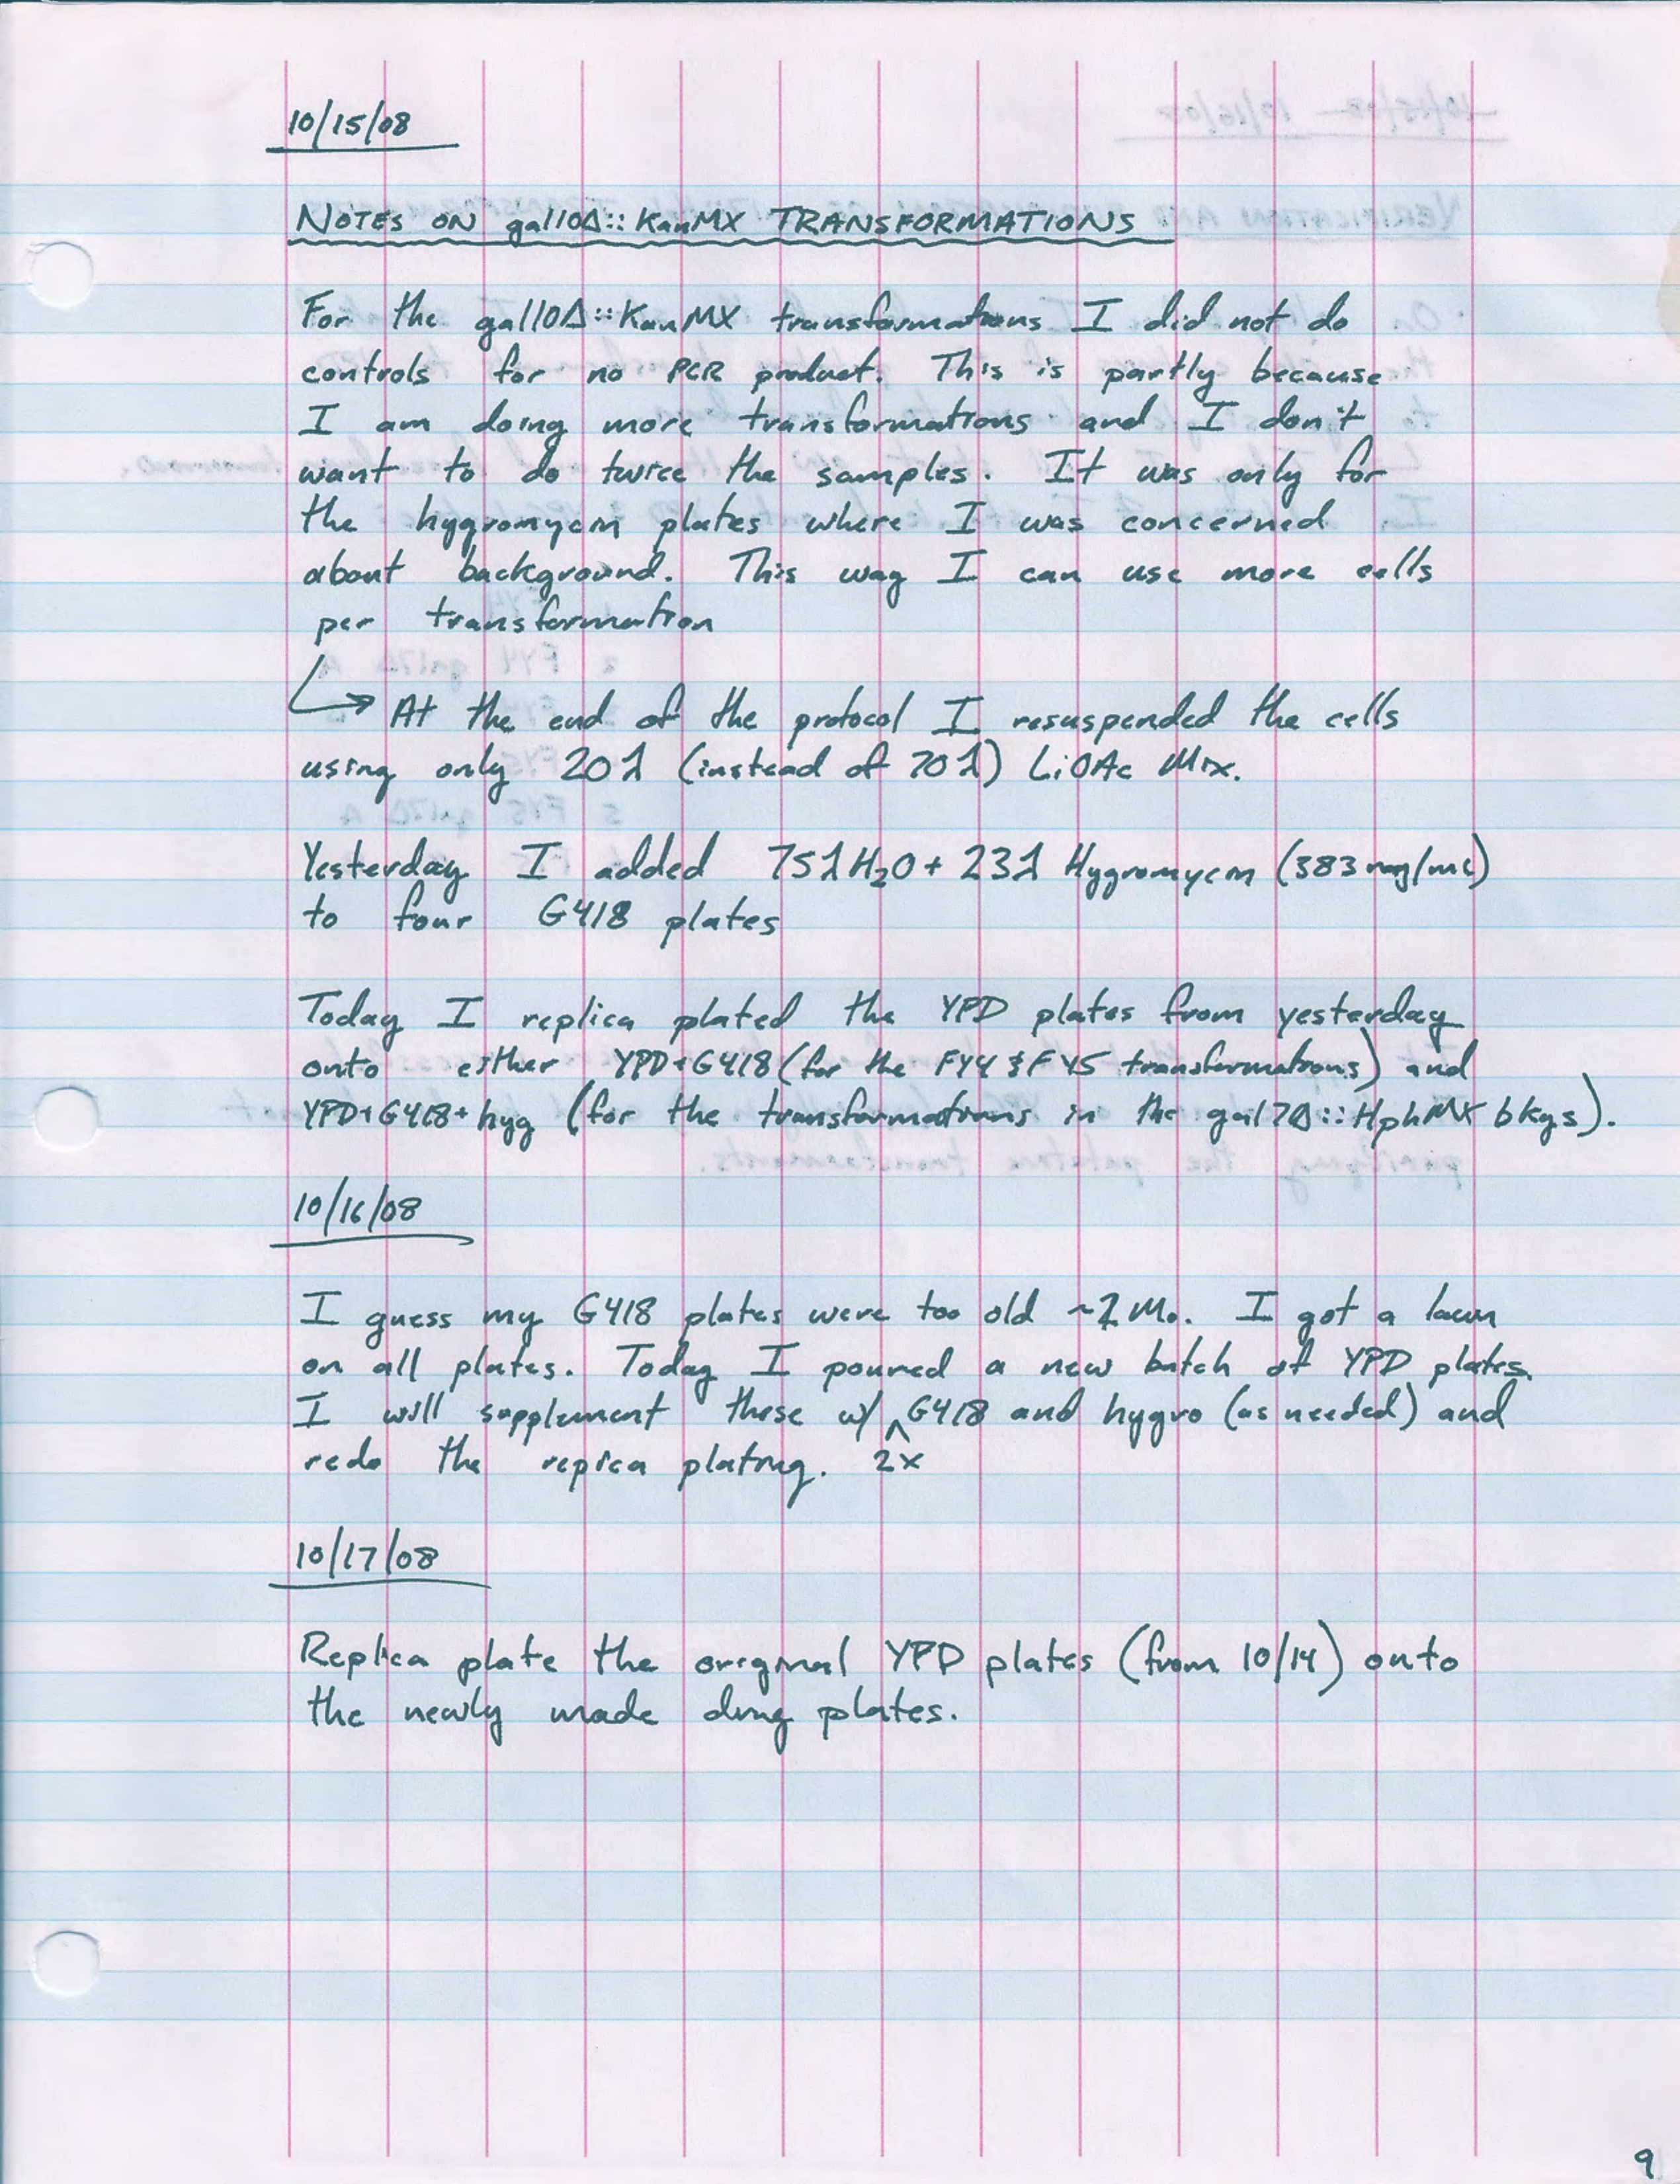 10/15/08
NOTES ON gal10Δ::KanMX TRANSFORMATIONS
For the gal10Δ::KanMX transformations I did not do
controls for no PCR product. This is partly because
I am doing more transformations and I don't
want to do twice the samples. It was only for
the hygromycin plates where I was concerned
about background. This way I can use more cells
per transformation
↳ At the end of the protocol I resuspended the cells
using only 20λ (instead of 70λ) LiOAc Mix.
Yesterday I added 75λ H₂O + 23λ Hygromycin (383 mg/mL)
to four G418 plates
Today I replica plated the YPD plates from yesterday
onto either YPD+G418 (for the FY4 & FY5 transformations) and
YPD+G418+hyg (for the transformations in the gal7Δ::HphMX bkgs).
10/16/08
I guess my G418 plates were too old ~2 Mo. I got a lawn
on all plates. Today I poured a new batch of YPD plates.
I will supplement these w/ 2x G418 and hygro (as needed) and
redo the replica plating.
10/17/08
Replica plate the original YPD plates (from 10/14) onto
the newly made drug plates.
9